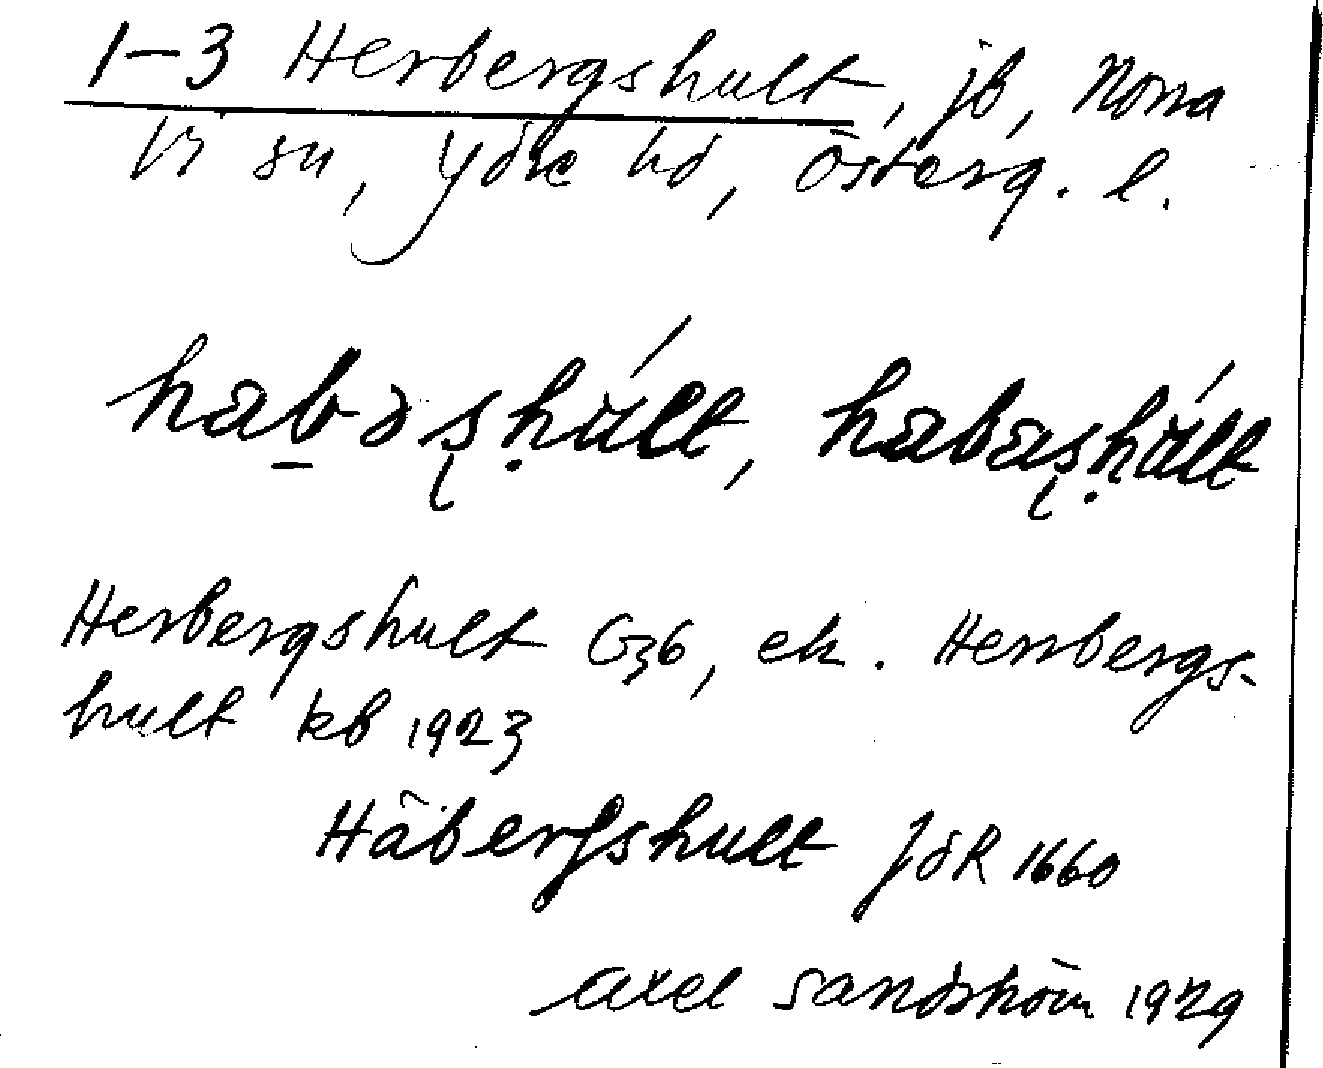 1-3 Herbergshult, jb, Norra
Vi sn, Ydre hd, Österg. l.
habəʂḥúlt, habaʂḥúlt
Herbergshult G36, ek. Herrbergs-
hult kb 1923
Häbergshult JdR 1660
Axel Sandström 1929